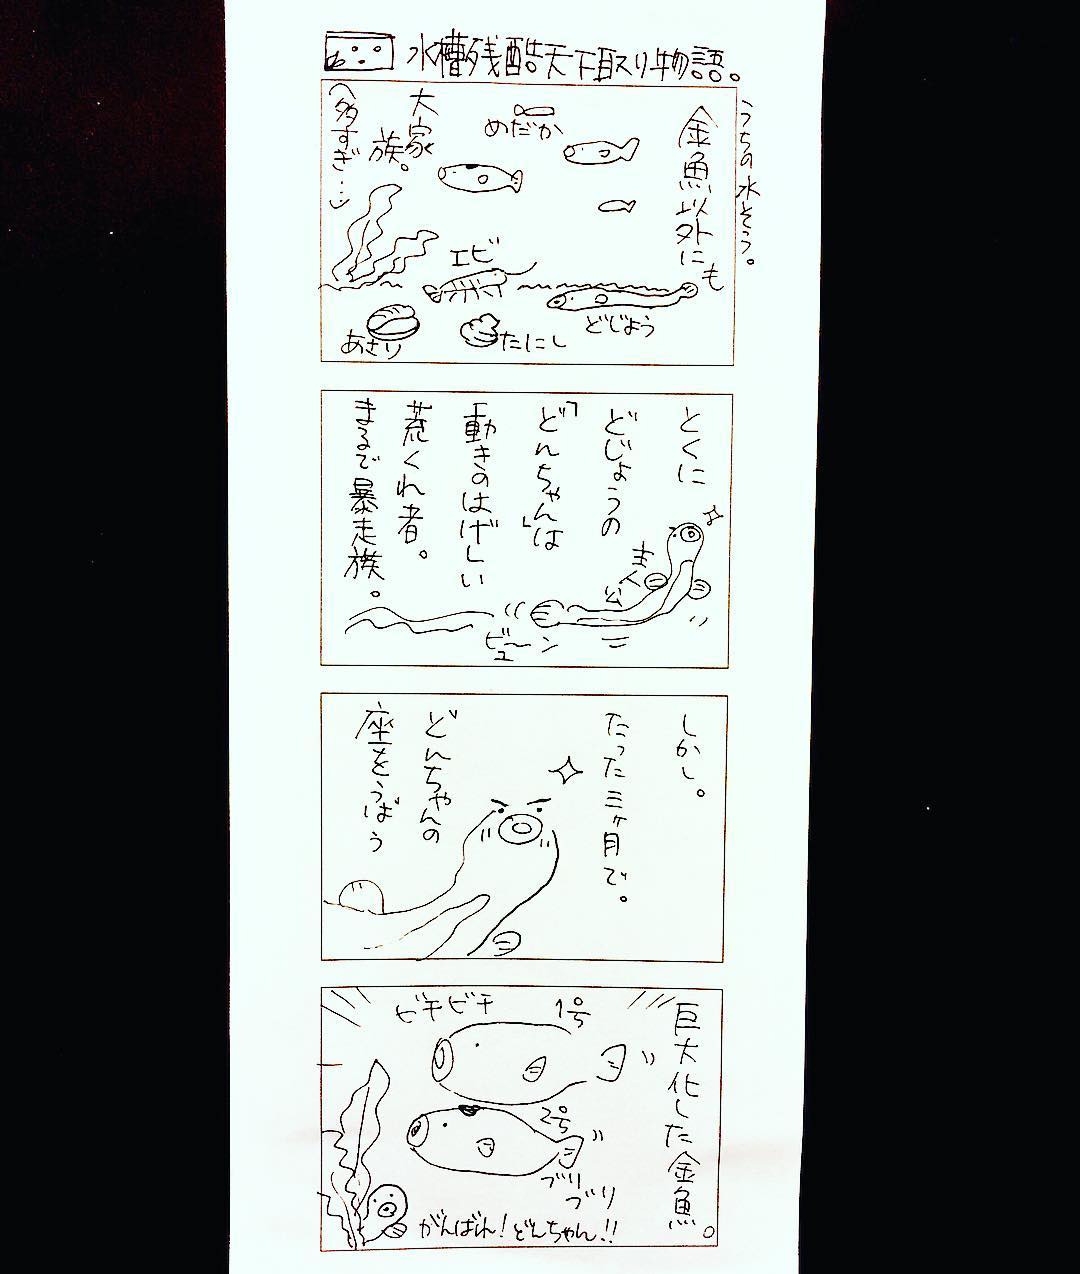 水槽残酷天下取り物語。
うちの水そう。
金魚以外にも
めだか
大家
族。
(多すぎ…)
エビ
どじょう
あさり
たにし
とくに
どじょうの
「どんちゃん」は
動きのはげしい
荒くれ者。
まるで暴走族。
主人公
ビューン
しかし。
たった三ヶ月で。
どんちゃんの
座をうばう
巨大化した金魚。
1号
ビチビチ
2号
ブリ
ブリ
がんばれ!どんちゃん!!